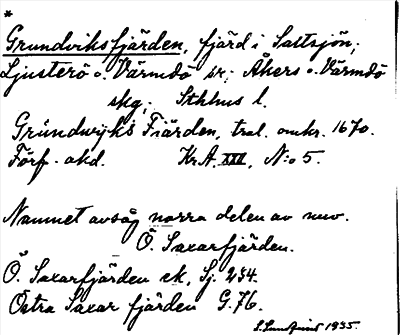 *
Grundviksfjärden, fjärd i Saltsjön;
Ljusterö o. Värmdö sr; Åkers o. Värmdö
skg; Sthlms l.
Grundwyks Fiärden, tral. omkr. 1670.
Förf. okd. Kr.A. XXX, N:o 5.
Namnet avsåg norra delen av nuv.
Ö. Saxarfjärden.
Ö. Saxarfjärden ek, Sj. 234.
Östra Saxar fjärden G.76.
1935.